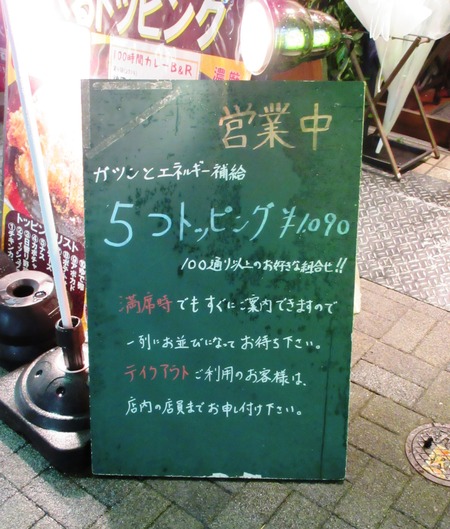 トッピング
100時間カレーB&R
営業中
ガツンとエネルギー補給
5つトッピング ¥1,090
100通り以上のお好きな組合せ!!
満席時でもすぐにご案内できますので
一列にお並びになってお待ち下さい。
テイクアウトご利用のお客様は、
店内の店員までお申し付け下さい。
トッピングリスト